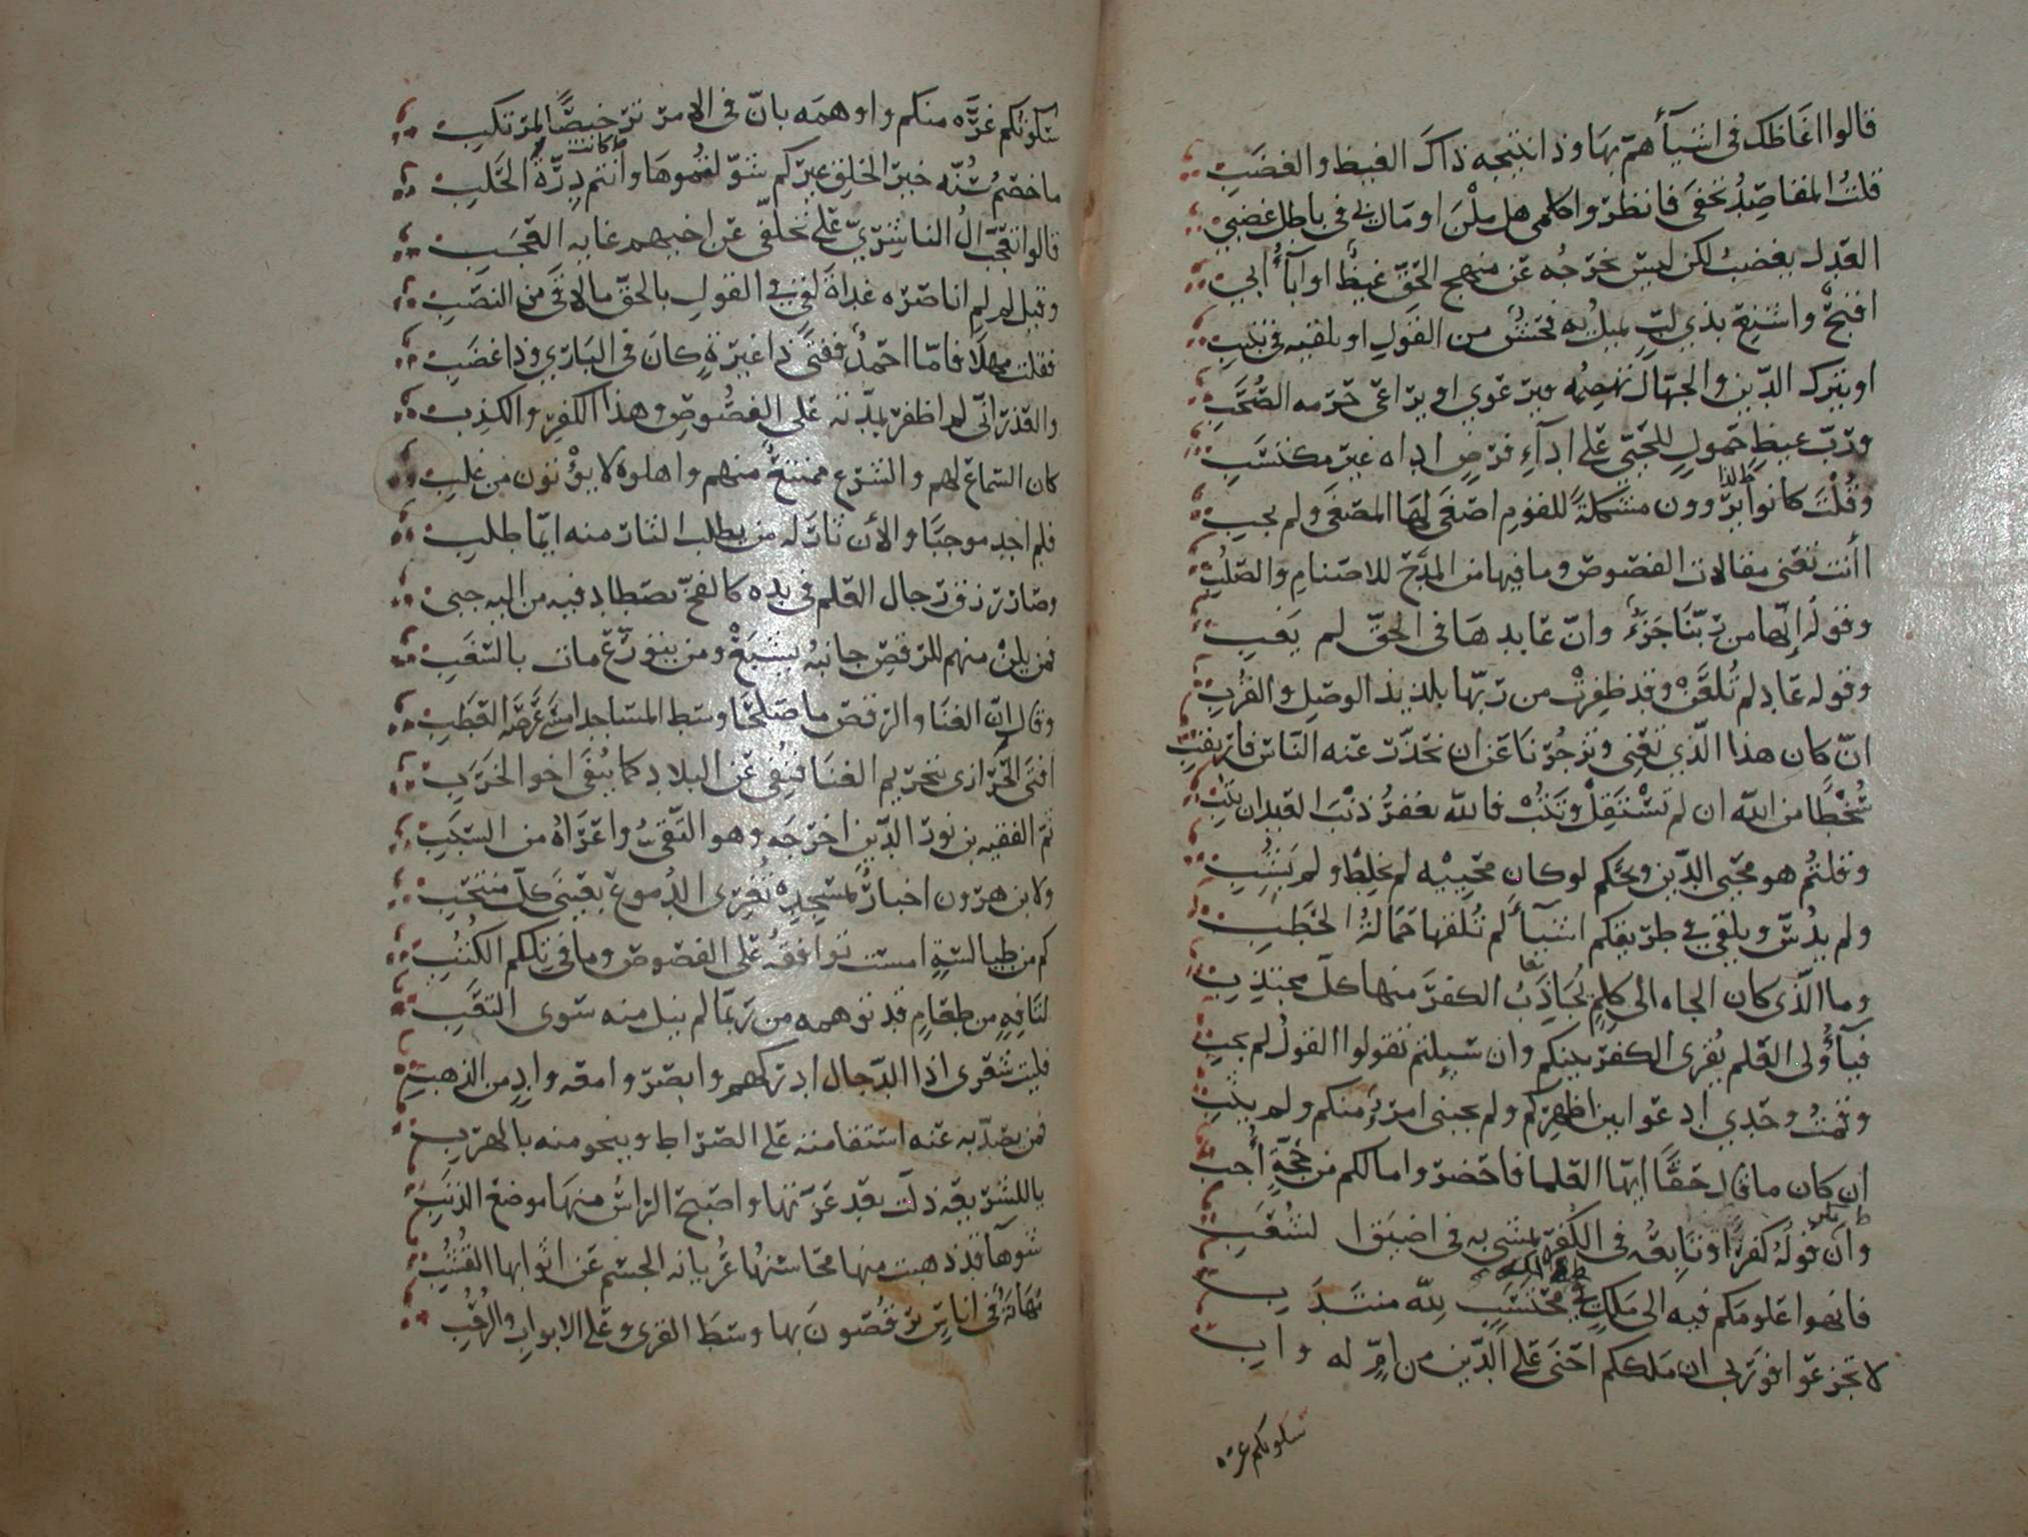 قالوا اغاظك في اشيآء همّ بها وذا نتيجه ذاك الغيظ والغضب
قلت المقاصد تخفى فانظروا كلمي هل ملن او مال بي في باطل غضبي
العدل يغضب لكن ليس يخرجه عن منهج الحق غيظ او ابآء ابي
اقبح واشنع بذي لبّ يميل به فحش من القول او يلقيه في
او يترك الدين والجهال تهضمه ويرعوي او يراعي حرمه الصحب
وربّ غيظ حمول للمحبّ على ادآء فرض اداه غير مكتسب
وقلت كانوا يرون مشكلة للقوم اصغى لها المصغى ولم يجب
أانت تعني مقالات الفصوص وما فيها من المدح للاصنام والصلب
وقوله انها من ربّنا جزء وانّ عابدها في الحق لم يعب
وقوله عاد لم تلعن وقد ظفرت من ربّها بلذيذ الوصل والقرب
ان كان هذا الذي تعني وتزجرنا عن ان نحذّر عنه الناس فارتقب
سخطا من الله ان لم تستقل وتتب فالله يغفر ذنب العبد ان يتب
وقلتم هو محيي الدين ويحكم لو كان محييه لم يخلط ولم يشب
ولم يدسّ ويلقي في طريقكم اشيآء لم تلفها حمالة الحطب
وما الذي كان الجاه الى كلم يجاذب الكفر منها كل مجتذب
فيآ أولى العلم يقرى الكفر بينكم وان سيلتم تقولوا القول لم يجب
وقمت وحدي ادعو اين اظهركم ولم يجبني امرؤ منكم ولم يثب
ان كان ما قال حقا ايها العلما فاحضروا مالكم من حجّة أجب
وان قوله كفرا وتابعه في الكفر يمشي به في اضيق الشعب
فانهوا علومكم فيه الى ملك في الله محتسب لله منتدب
لا تجزعوا فوربي ان ملككم احنى على الدين من امّ له واب
سكوتكم غره
سكوتكم غرّه منكم واوهمه بانّ في الامر ترخيصا لمرتكب
ما خصّم سنّه خير الخلق غيركم شوّلقموها وانتم كانت درّة الحلب
قالوا تعجّب ال الناشريّ على تخلّفي عن اخيهم غايه العجب
وقيل لم لم اناصره غداة لقي في القول بالحق مالاقى من النصب
فقلت مهلا فامّا احمد ففتى ذا غيرة كان في الباري وذا غضب
والعذر انّي لم اظفر بمدّته على الفصوص وهذا الكفر والكذب
كان السماع لهم والشرع ممتنع منهم واهلوه لا يؤتون من غلب
فلم اجد موجبا والأن ثار له من يطلب الثار منه ايّما طلب
وصار رزق رجال العلم في يده كالفخ يصطاد فيه من اليه جبى
فمن يلن منهم للرقص جانبه يشبع ومن يتورّع مات بالسغب
وقال انّ الغنا والرقص ما صلحا وسط المساجد
افتى الحرازي بتحريم الغنا فنفي عن البلاد كما ينفى اخو الخرب
ثم الفقيه بن نور الدين اخرجه وهو التقيّ واعزاه من السبب
ولابن هرون اخبار بمسجده تغري الدموع بعيني كل منتحب
كم من طيالسة امست توافقه على الفصوص وما في تلكم الكتب
لتافه من طعام قد توهمه من ربّما لم ينل منه سوى التعب
فليت شعري اذا الدجال ادركهم وابصروا معه واد من الذهب
فمن يصدّ به عنه استقامته على الصراط وينجو منه بالهرب
ياللشريعه ذلت بعد عزّتها واصبح الراس منها موضع الذنب
شوهآ قد ذهبت منها محاسنها عريانه الجسم عن اثوابها القشب
مهانة في اناس يرقصون بها وسط القرى وعلى الابواب والرحب